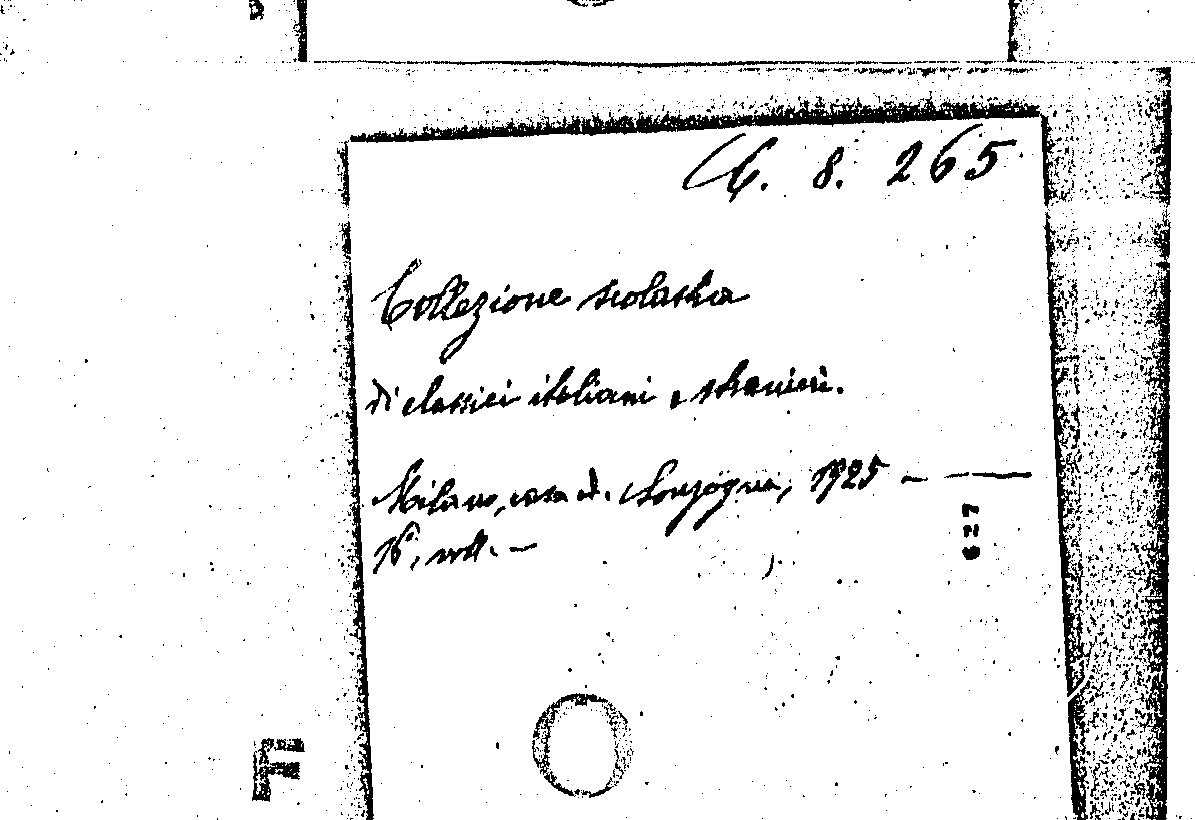 C6. 8. 265
Collezione scolastica
di classici italiani e stranieri.
Milano, casa ed. Sonzogno, 1925 —
627
16°, voll. —
F